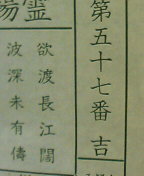 第五十七番 吉
欲渡長江闊
波深未有儔
靈